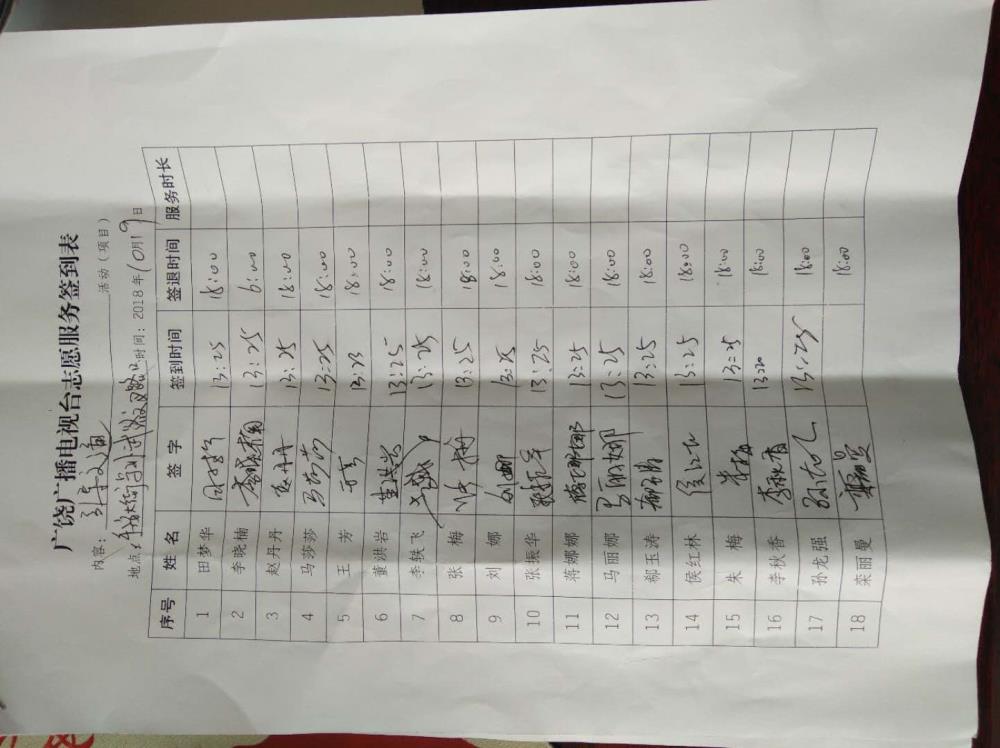 广饶广播电视台志愿服务签到表
内容：引导交通 活动（项目）
地点： 时间：2018年10月19日
序号 姓名 签字 签到时间 签退时间 服务时长
1 田梦华 田梦华 13:25 18:00
2 李晓楠 李晓楠 13:25 6:00
3 赵丹丹 赵丹丹 13:25 18:00
4 马莎莎 马莎莎 13:25 18:00
5 王芳 王芳 13:23 18:00
6 董洪岩 董洪岩 13:25 18:00
7 李轶飞 13:25 18:00
8 张梅 张梅 13:25 18:00
9 刘娜 刘娜 13:25 18:00
10 张振华 张振华 13:25 18:00
11 蒋娜娜 蒋娜娜 13:25 18:00
12 马丽娜 马丽娜 13:25 18:00
13 郗玉涛 13:25 18:00
14 侯红林 侯红林 13:25 18:00
15 朱梅 朱梅 13:25 18:00
16 李秋香 李秋香 13:20 18:00
17 孙龙强 13:25 18:00
18 栾丽曼 栾丽曼 18:00